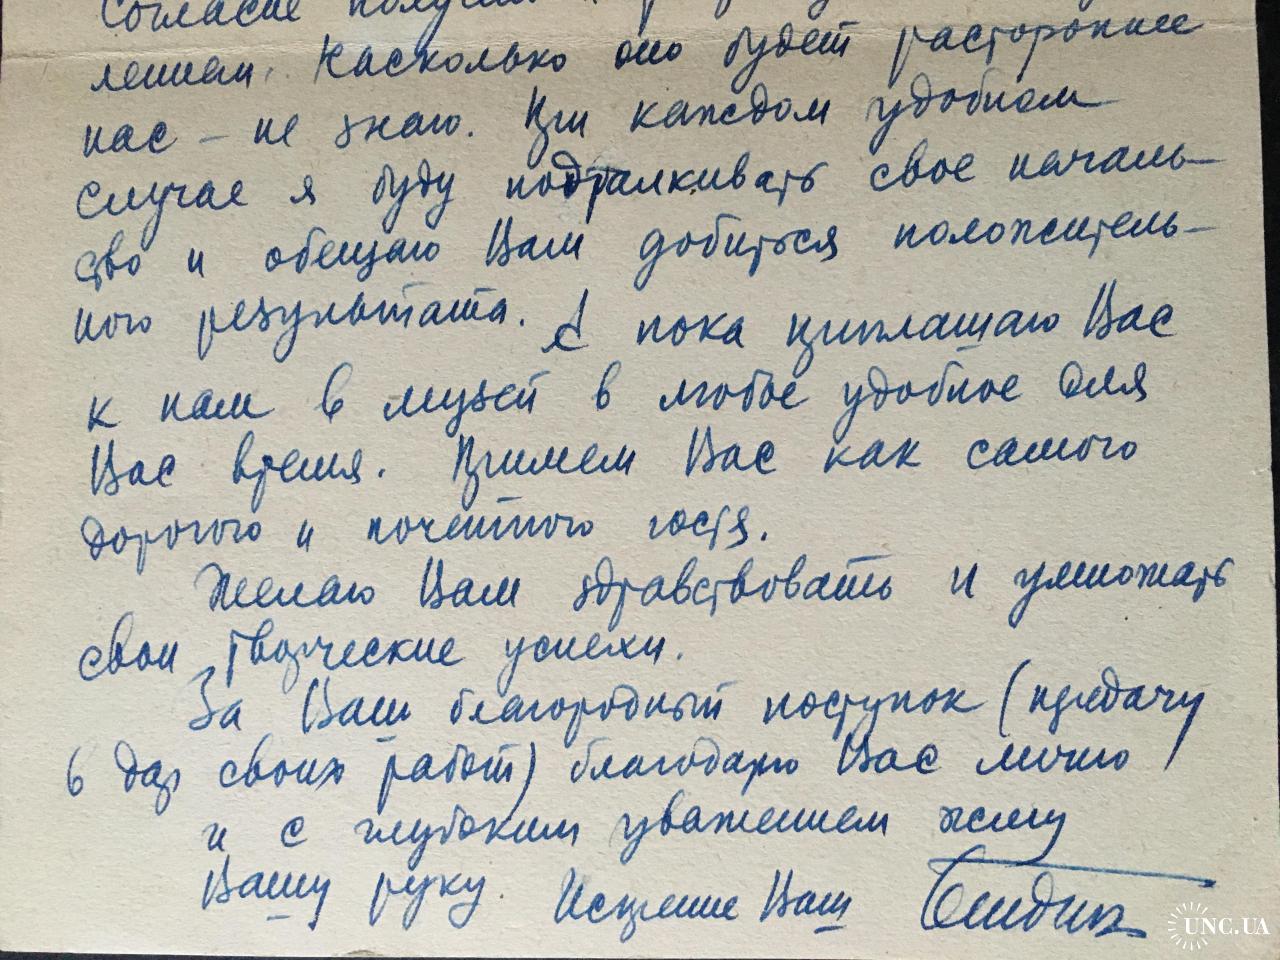 Согласие получи
лением. Насколько оно будет расторопнее
нас – не знаю. При каждом удобном
случае я буду подталкивать свое началь-
ство и обещаю Вам добиться положитель-
ного результата. А пока приглашаю Вас
к нам в музей в любое удобное для
Вас время. Примем Вас как самого
дорогого и почетного гостя.
Желаю Вам здравствовать и умножать
свои творческие успехи.
За Ваш благородный поступок (передачу
в дар своих работ) благодарю Вас лично
и с глубоким уважением жму
Вашу руку. Искренне Ваш
UNC.UA